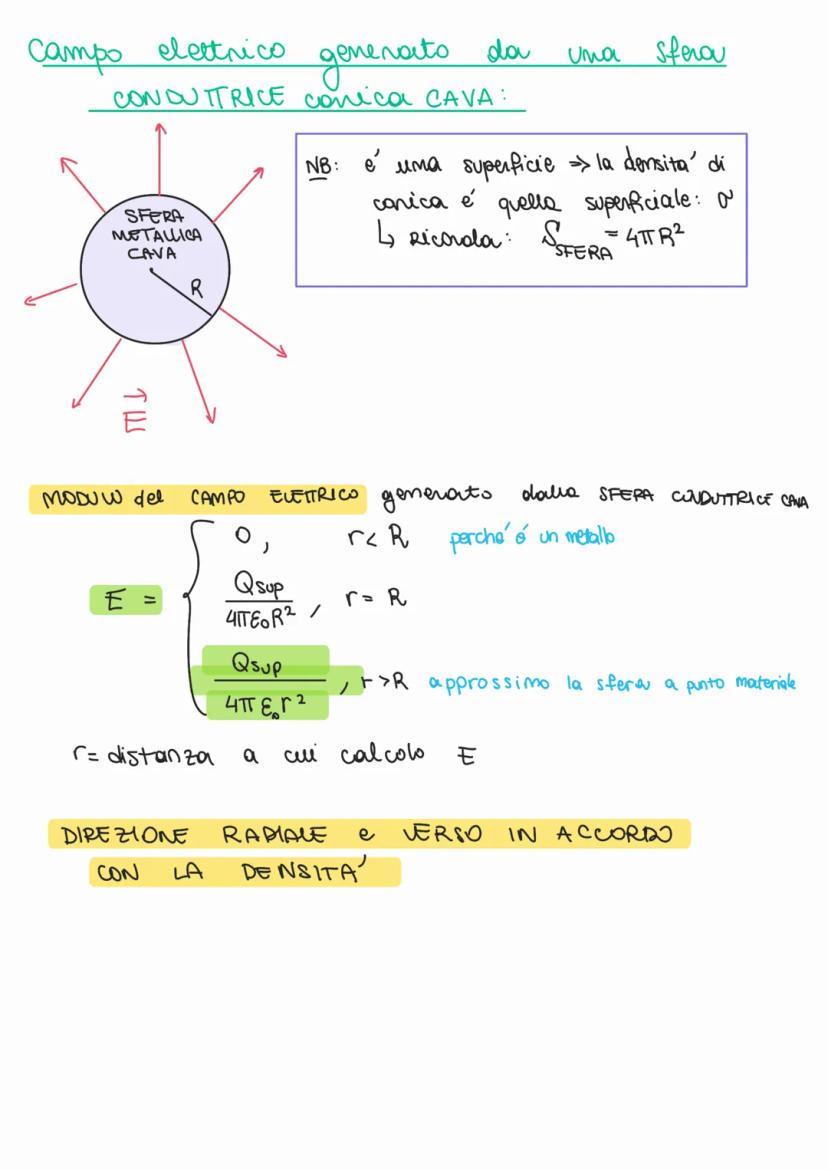 Campo elettrico generato da una sfera
CONDUTTRICE carica CAVA:
SFERA
METALLICA
CAVA
R
E
NB: e' una superficie => la densita' di
carica é quella superficiale: σ
↳ ricorda: S SFERA = 4πR²
MODULO del CAMPO ELETTRICO generato dalla SFERA CONDUTTRICE CAVA
0, r < R perche' é un metallo
E =
Qsup / 4πε₀R², r = R
Qsup / 4πε₀r², r > R approssimo la sfera a punto materiale
r = distanza a cui calcolo E
DIREZIONE RADIALE e VERSO IN ACCORDO
CON LA DENSITA'